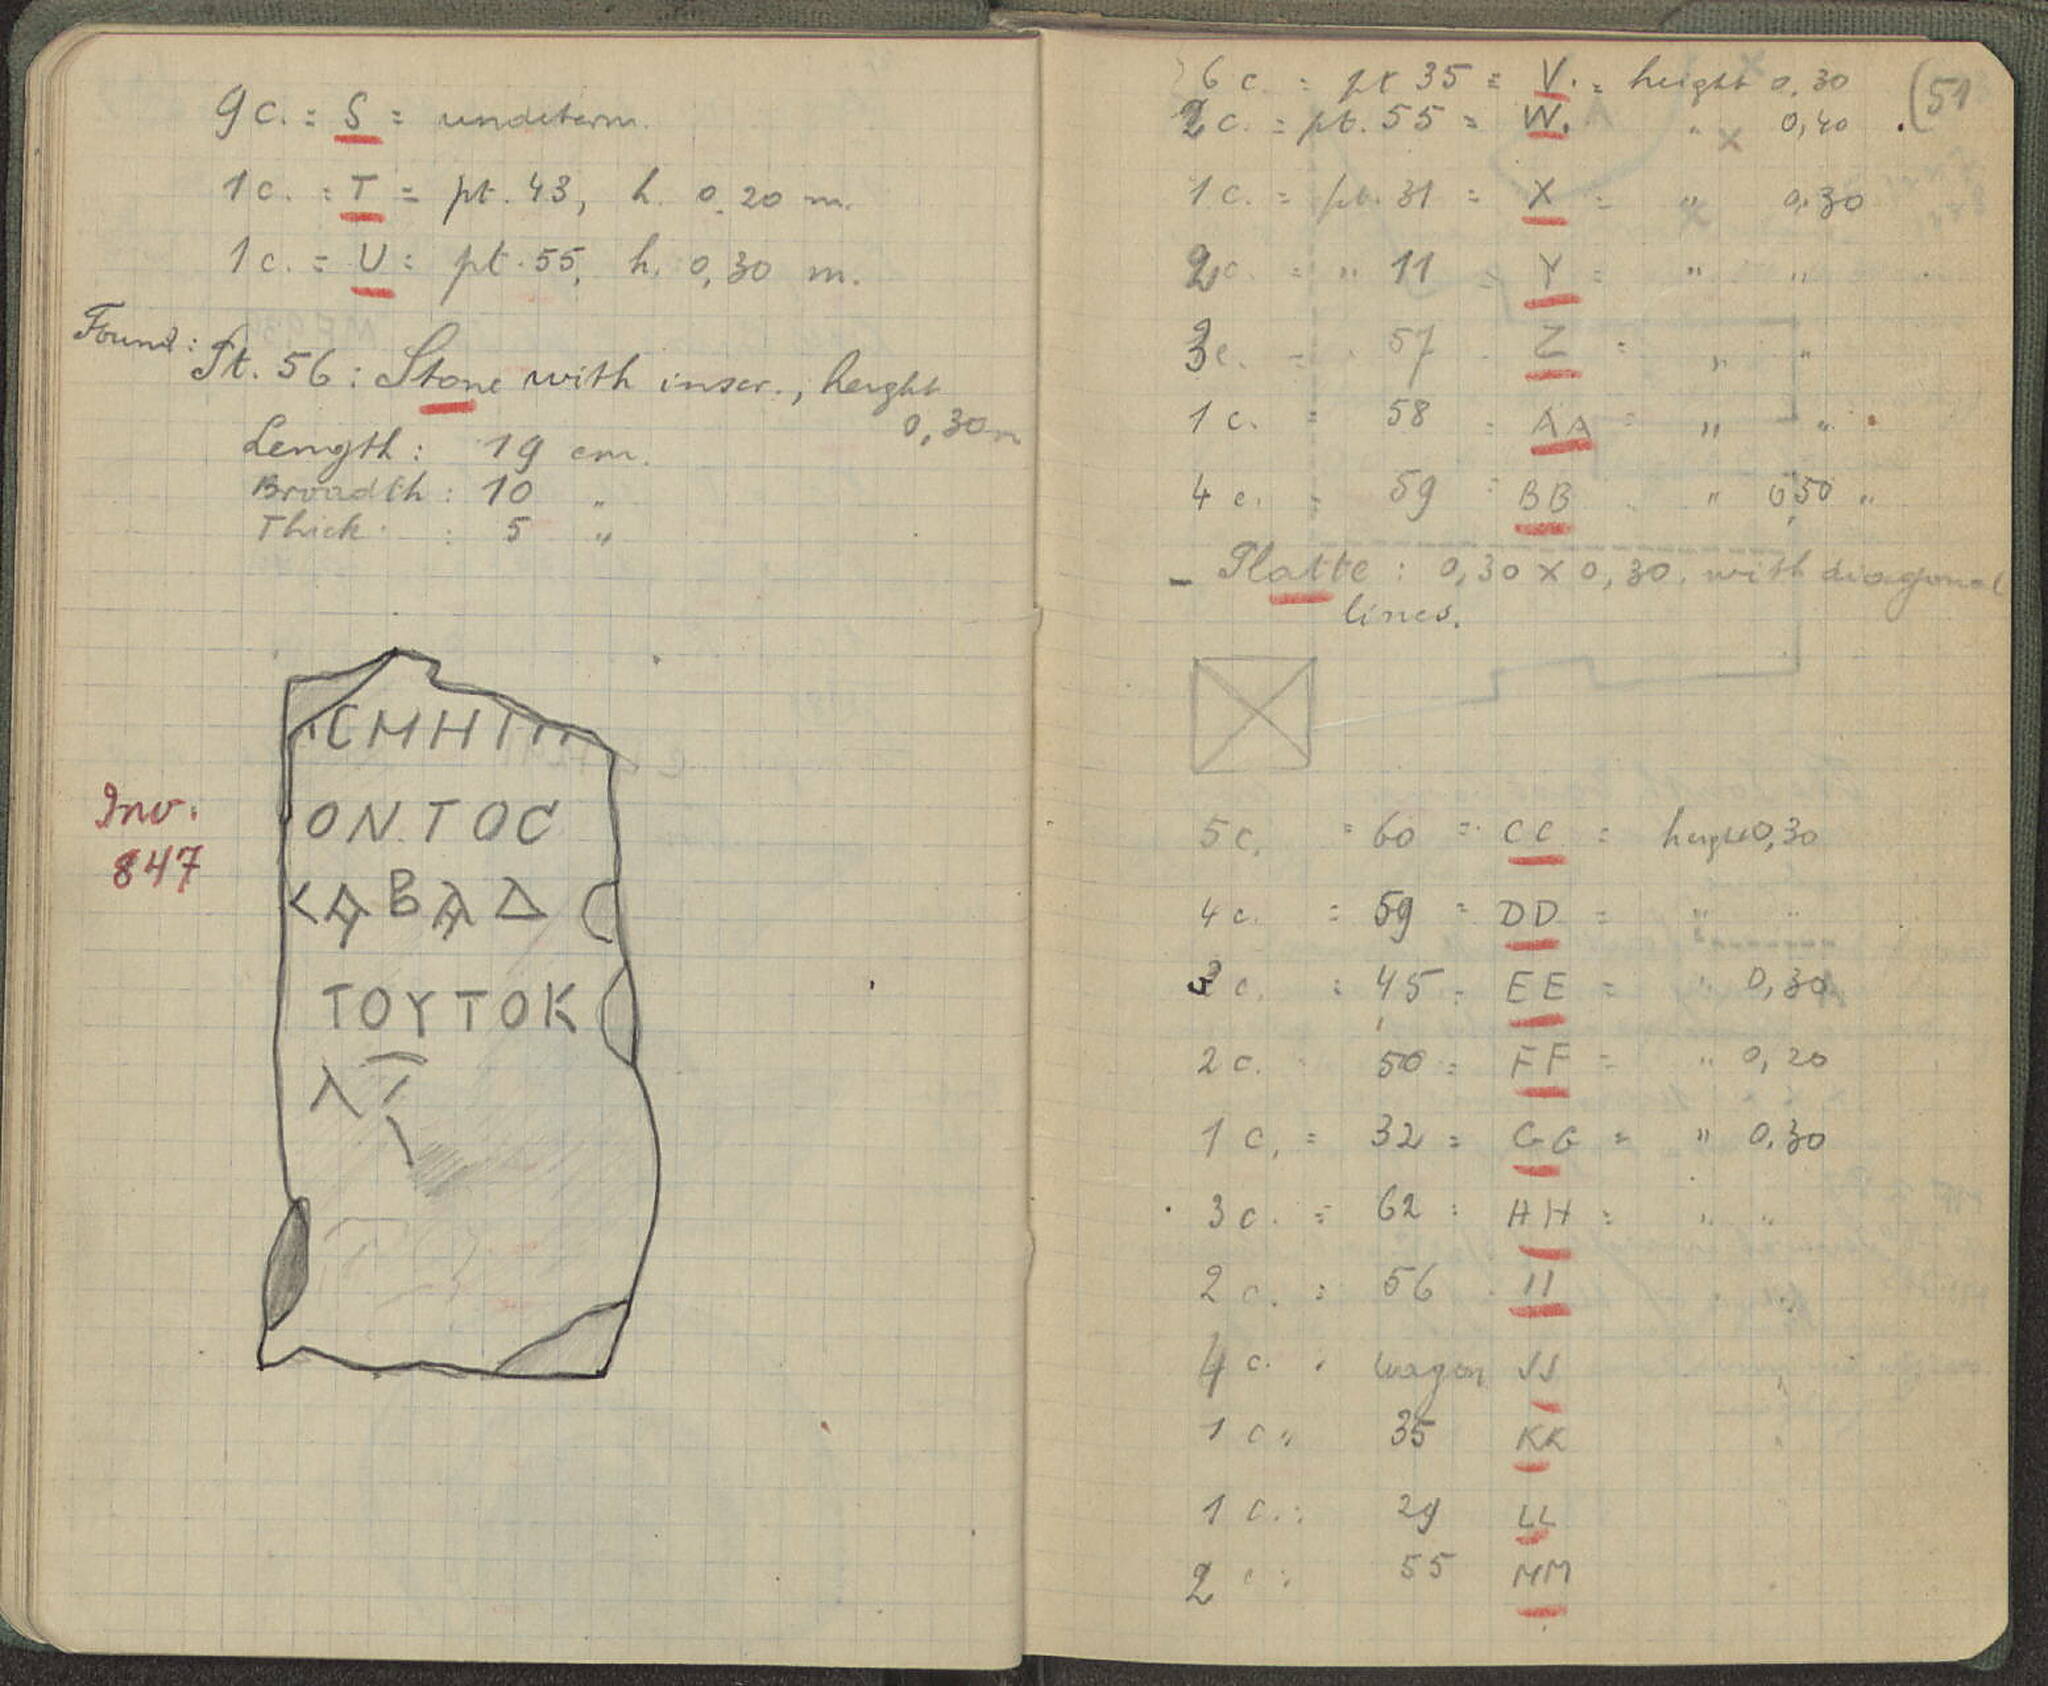 9 c. = S = undeterm.
1 c. = T = pt. 43, h. 0.20 m.
1 c. = U = pt. 55, h. 0,30 m.
Found:
Pt. 56 : Stone with inscr., height
0,30 m
Length : 19 cm.
Broadth : 10 "
Thick : 5 "
CMHT
ONTOC
KABAΔ
TOYTOK
Λ
Inv.
847
(51
6 c. = pt 35 = V. = height 0,30
2 c. = pt. 55 = W. " 0,40
1 c. = pt. 31 = X = " 0,30
2 c. = " 11 = Y = " "
3 c. = 57 = Z = " "
1 c. = 58 = AA = " "
4 c. = 59 = BB " 0,50 "
- Platte : 0,30 x 0,30. with diagonal
lines.
5 c. = 60 = CC = height 0,30
4 c. = 59 = DD = " "
3 c. = 45 = EE = " 0,30
2 c. 50 = FF = " 0,20
1 c. = 32 = GG = " 0.30
3 c. = 62 = HH = " "
2 c. = 56 . II
4 c. wagon JJ
1 c " 35 KK
1 c. : 29 LL
2 c : 55 MM